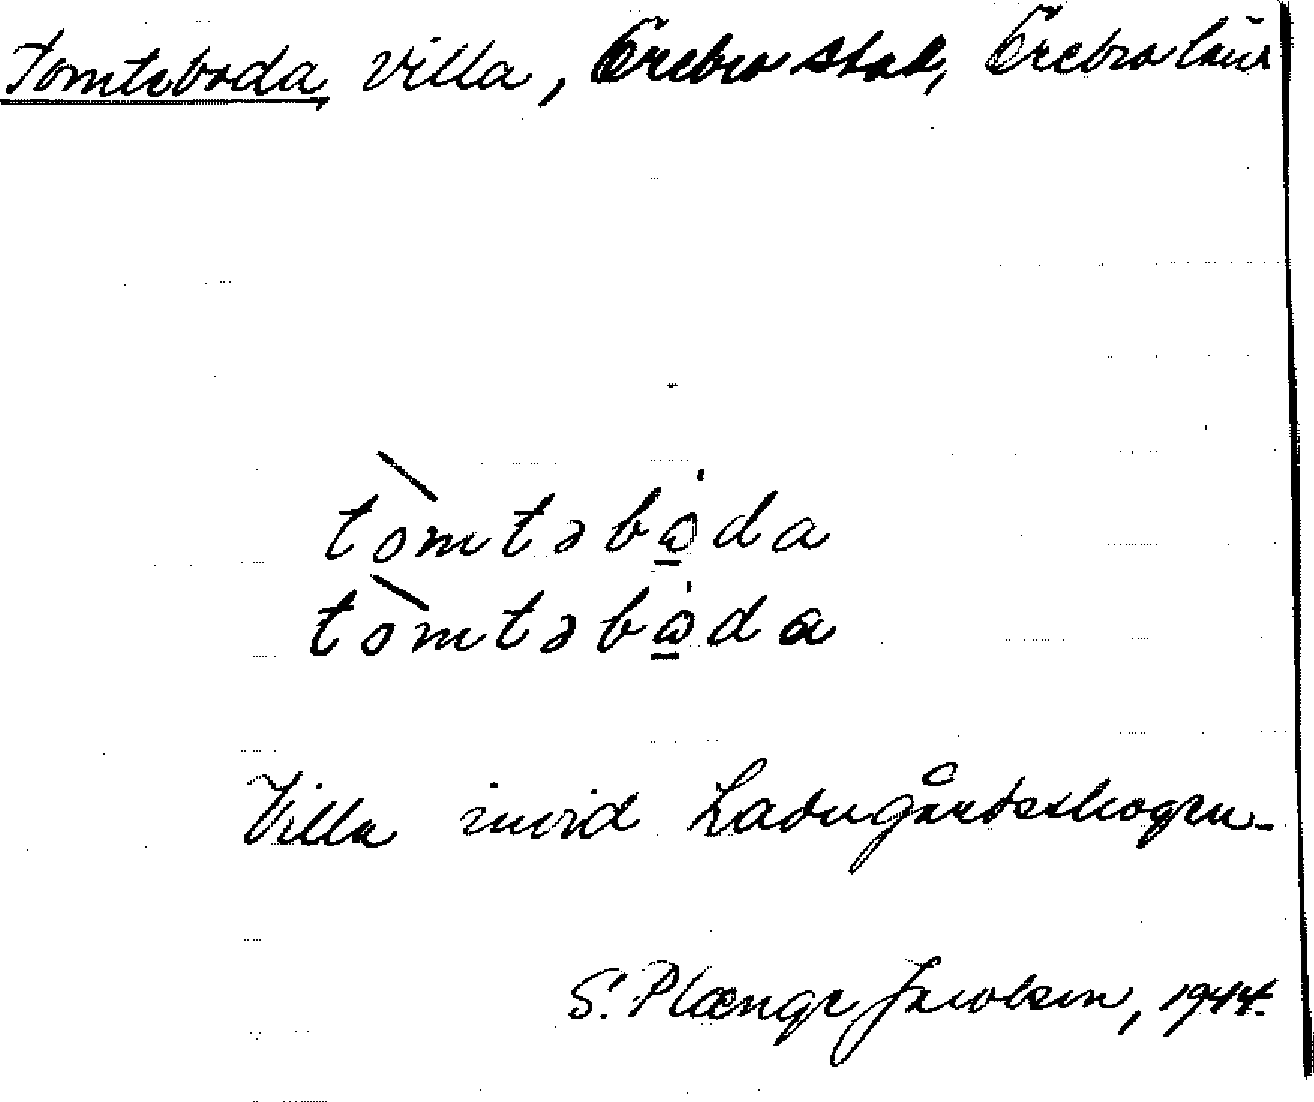 Tomteboda, villa, Örebro stad, Örebro län
tòmtəbȯ̱da
tòmtəbȯ̱da
Villa invid Ladugårdsskogen.
S. Plænge Jacobson, 1944.